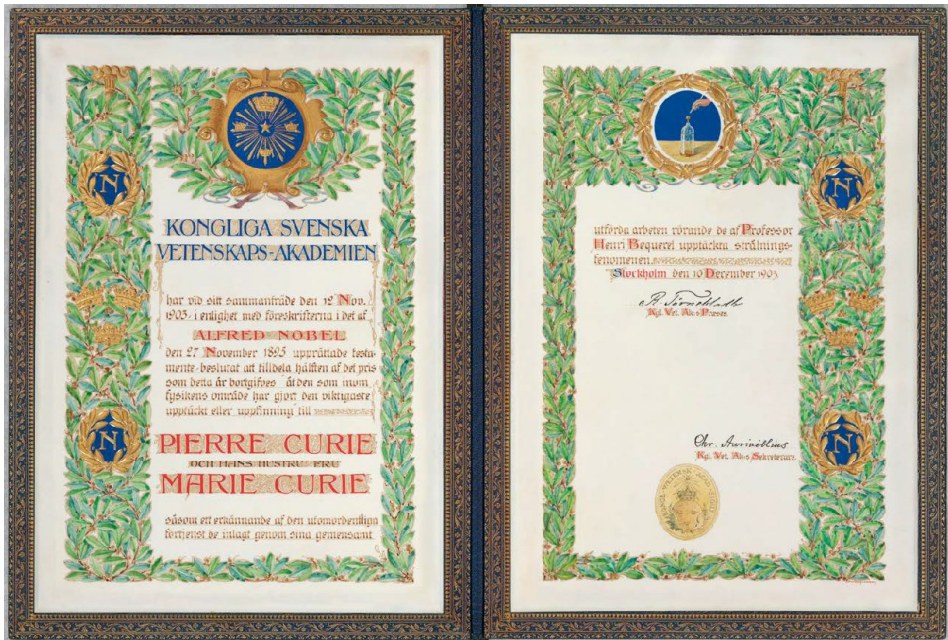 KONGLIGA SVENSKA
VETENSKAPS-AKADEMIEN
har vid sitt sammanträde den 12 Nov.
1903, i enlighet med föreskrifterna i det af
ALFRED NOBEL
den 27 November 1895 upprättade testa-
mente, beslutat att tilldela hälften af det pris
som detta år bortgifves åt den som inom
fysikens område har gjort den viktigaste
upptäckt eller uppfinning till
PIERRE CURIE
OCH HANS HUSTRU FRU
MARIE CURIE
såsom ett erkännande af den utomordentliga
förtjenst de inlagt genom sina gemensamt
N
N
utförda arbeten rörande de af Professor
Henri Bequerel upptäckta strålnings-
fenomenen.
Stockholm den 10 December 1903
R. Törnebladh
Kgl. Vet. Ak:s Præses.
Chr. Aurivillius
Kgl. Vet. Ak:s Sekreterare.
N
N